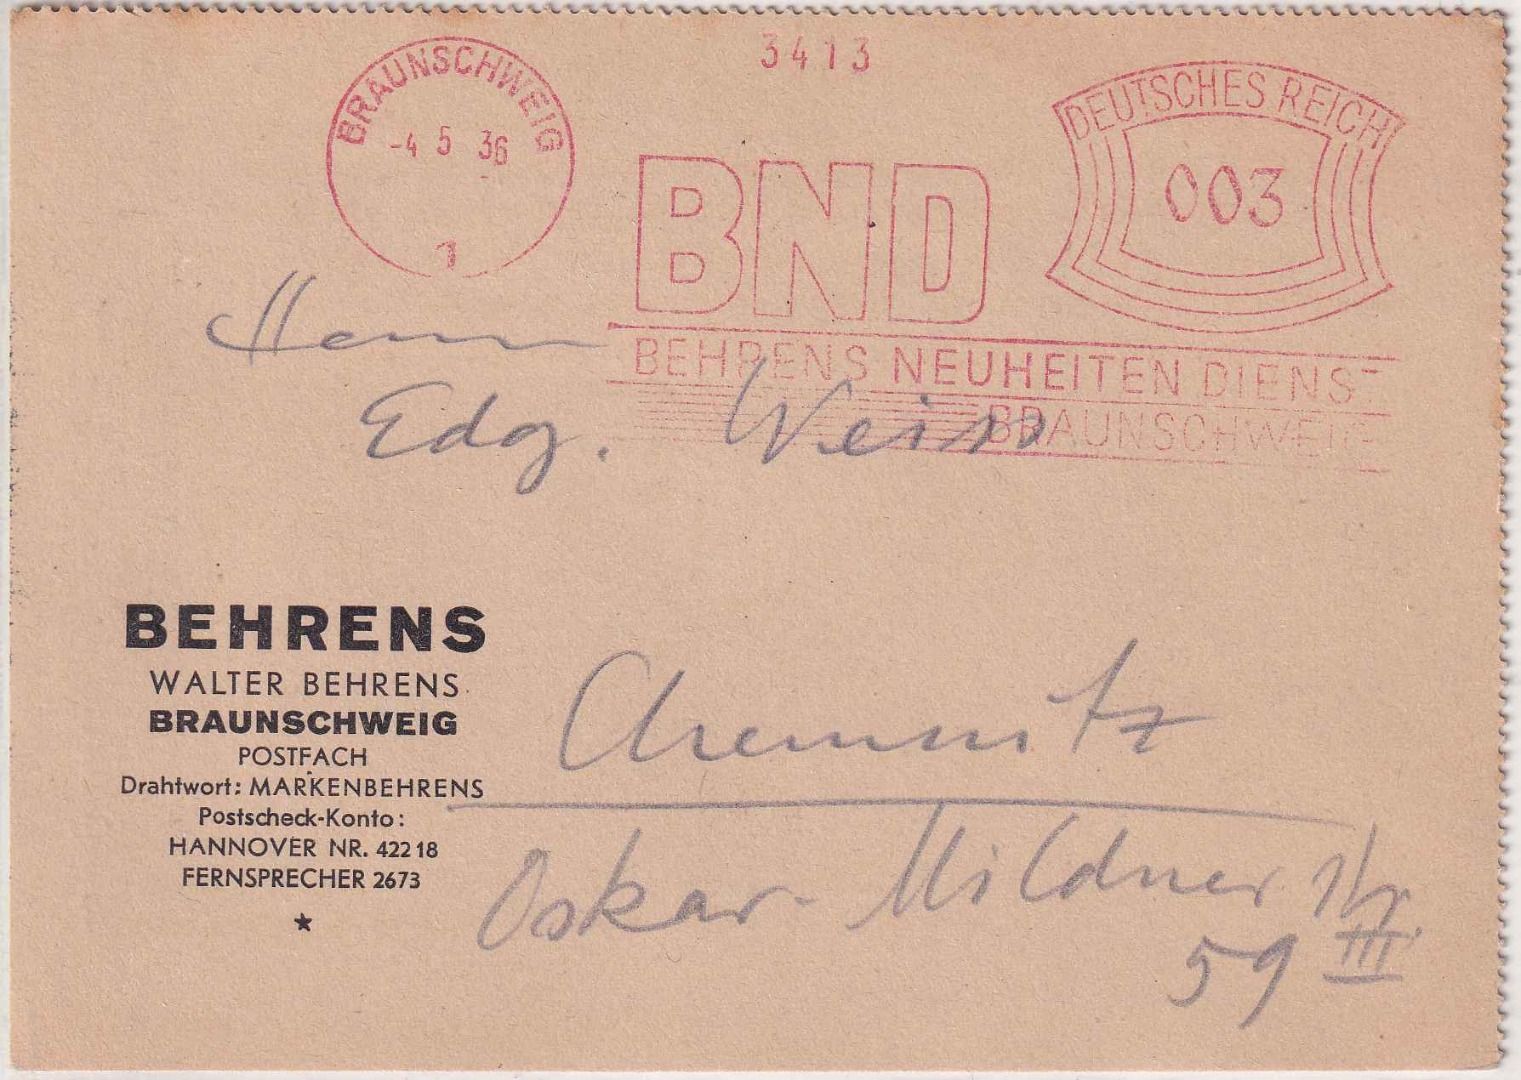 3413
BRAUNSCHWEIG
-4 5 36
1
DEUTSCHES REICH
003
BND
BEHRENS NEUHEITEN DIENST
BRAUNSCHWEIG
Herrn
Edg. Weiss
BEHRENS
WALTER BEHRENS
BRAUNSCHWEIG
POSTFACH
Drahtwort: MARKENBEHRENS
Postscheck-Konto:
HANNOVER NR. 42218
FERNSPRECHER 2673
Chemnitz
Oskar-Mildner Str.
59 III